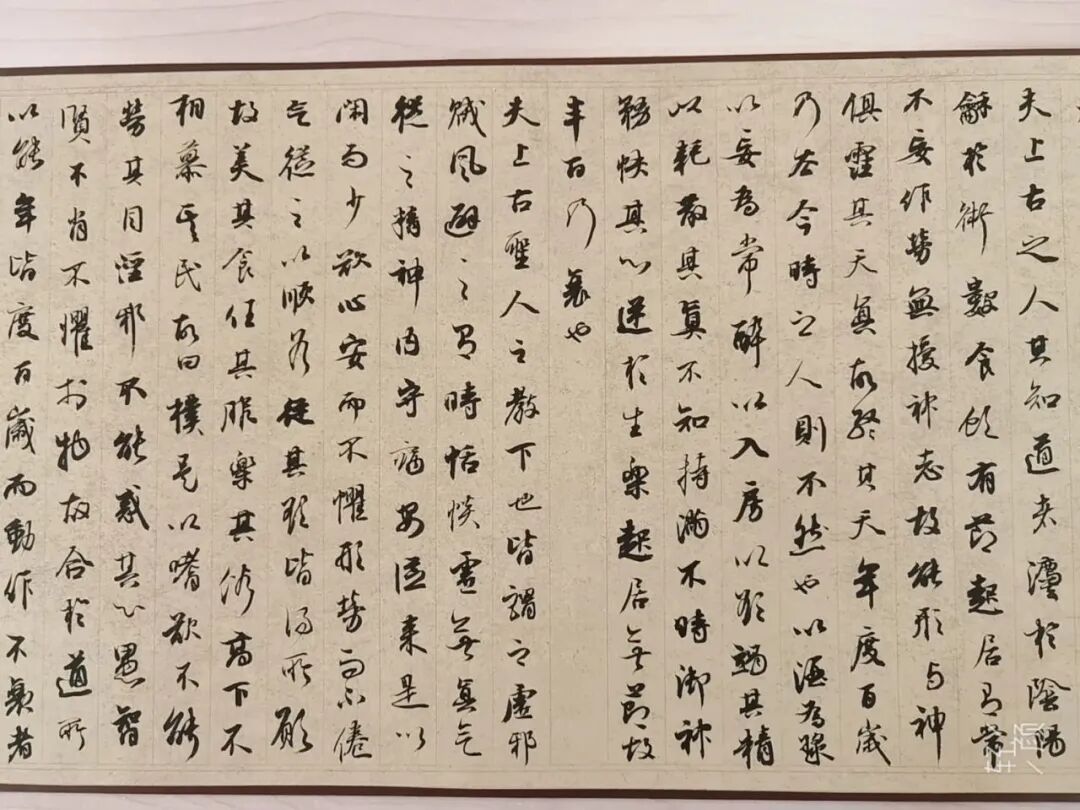 夫上古之人其知道者灋於陰陽
龢於術數食飲有節起居有常
不妄作勞無擾神志故能形与神
俱其天真故終其天年度百歲
乃去今時之人則不然也以酒為漿
以妄為常醉以入房以欲竭其精
以耗散其真不知持滿不時御神
務快其心逆於生樂起居無節故
半百乃衰也
夫上古聖人之教下也皆謂之虛邪
賊風避之有時恬惔虛無真气
從之精神內守病安從來是以
閑而少欲心安而不懼形勞而不倦
气從之以順各從其欲皆得所願
故美其食任其服樂其俗高下不
相慕其民故曰樸是以嗜欲不能
勞其目淫邪不能惑其心愚智
賢不肖不懼於物故合於道所
以能年皆度百歲而動作不衰者